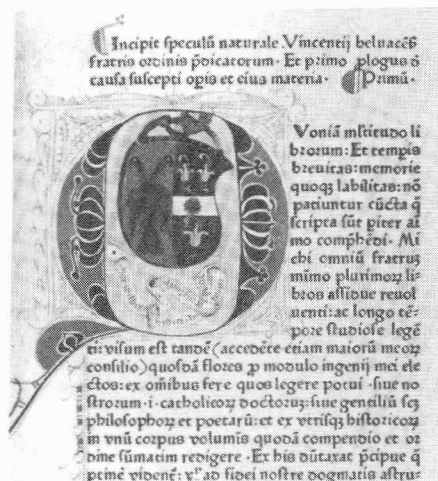 Incipit speculū naturale Vincentij beluacēs̄
fratris ordinis p̄dicatorum· Et primo plogus ō
causa suscepti op̄is et eius materia· Primū·
Voniā mltitudo li
brorum: Et tempis
breuitas: memorie
quoqꝫ labilitas: nō
patiuntur cūcta q̄
scripta sūt piter ai
mo comp̄hēdi· Mi
chi omniū fratrum
mīmo plurimoꝝ li⸗
bros assidue reuol
uenti: ac longo tē⸗
pore studiose legē
ti: visum est tandē (accedēte etiam maiorū meoꝝ
consilio) quosdā flores ꝓ modulo ingenij mei ele
ctos: ex om̄ibus fere quos legere potui· siue no
strorum· i· catholicoꝝ doctorū: siue gentiliū scꝫ
philosophoꝝ et poetarū: et ex vtrisqꝫ historicoꝝ
in vnū corpus volumis quodā compendio et or
dine sūmatim redigere· Ex his dūtaxat p̄cipue q̄
ptinē videnē: vꝉ ad fidei nostre dogmatis astru⸗